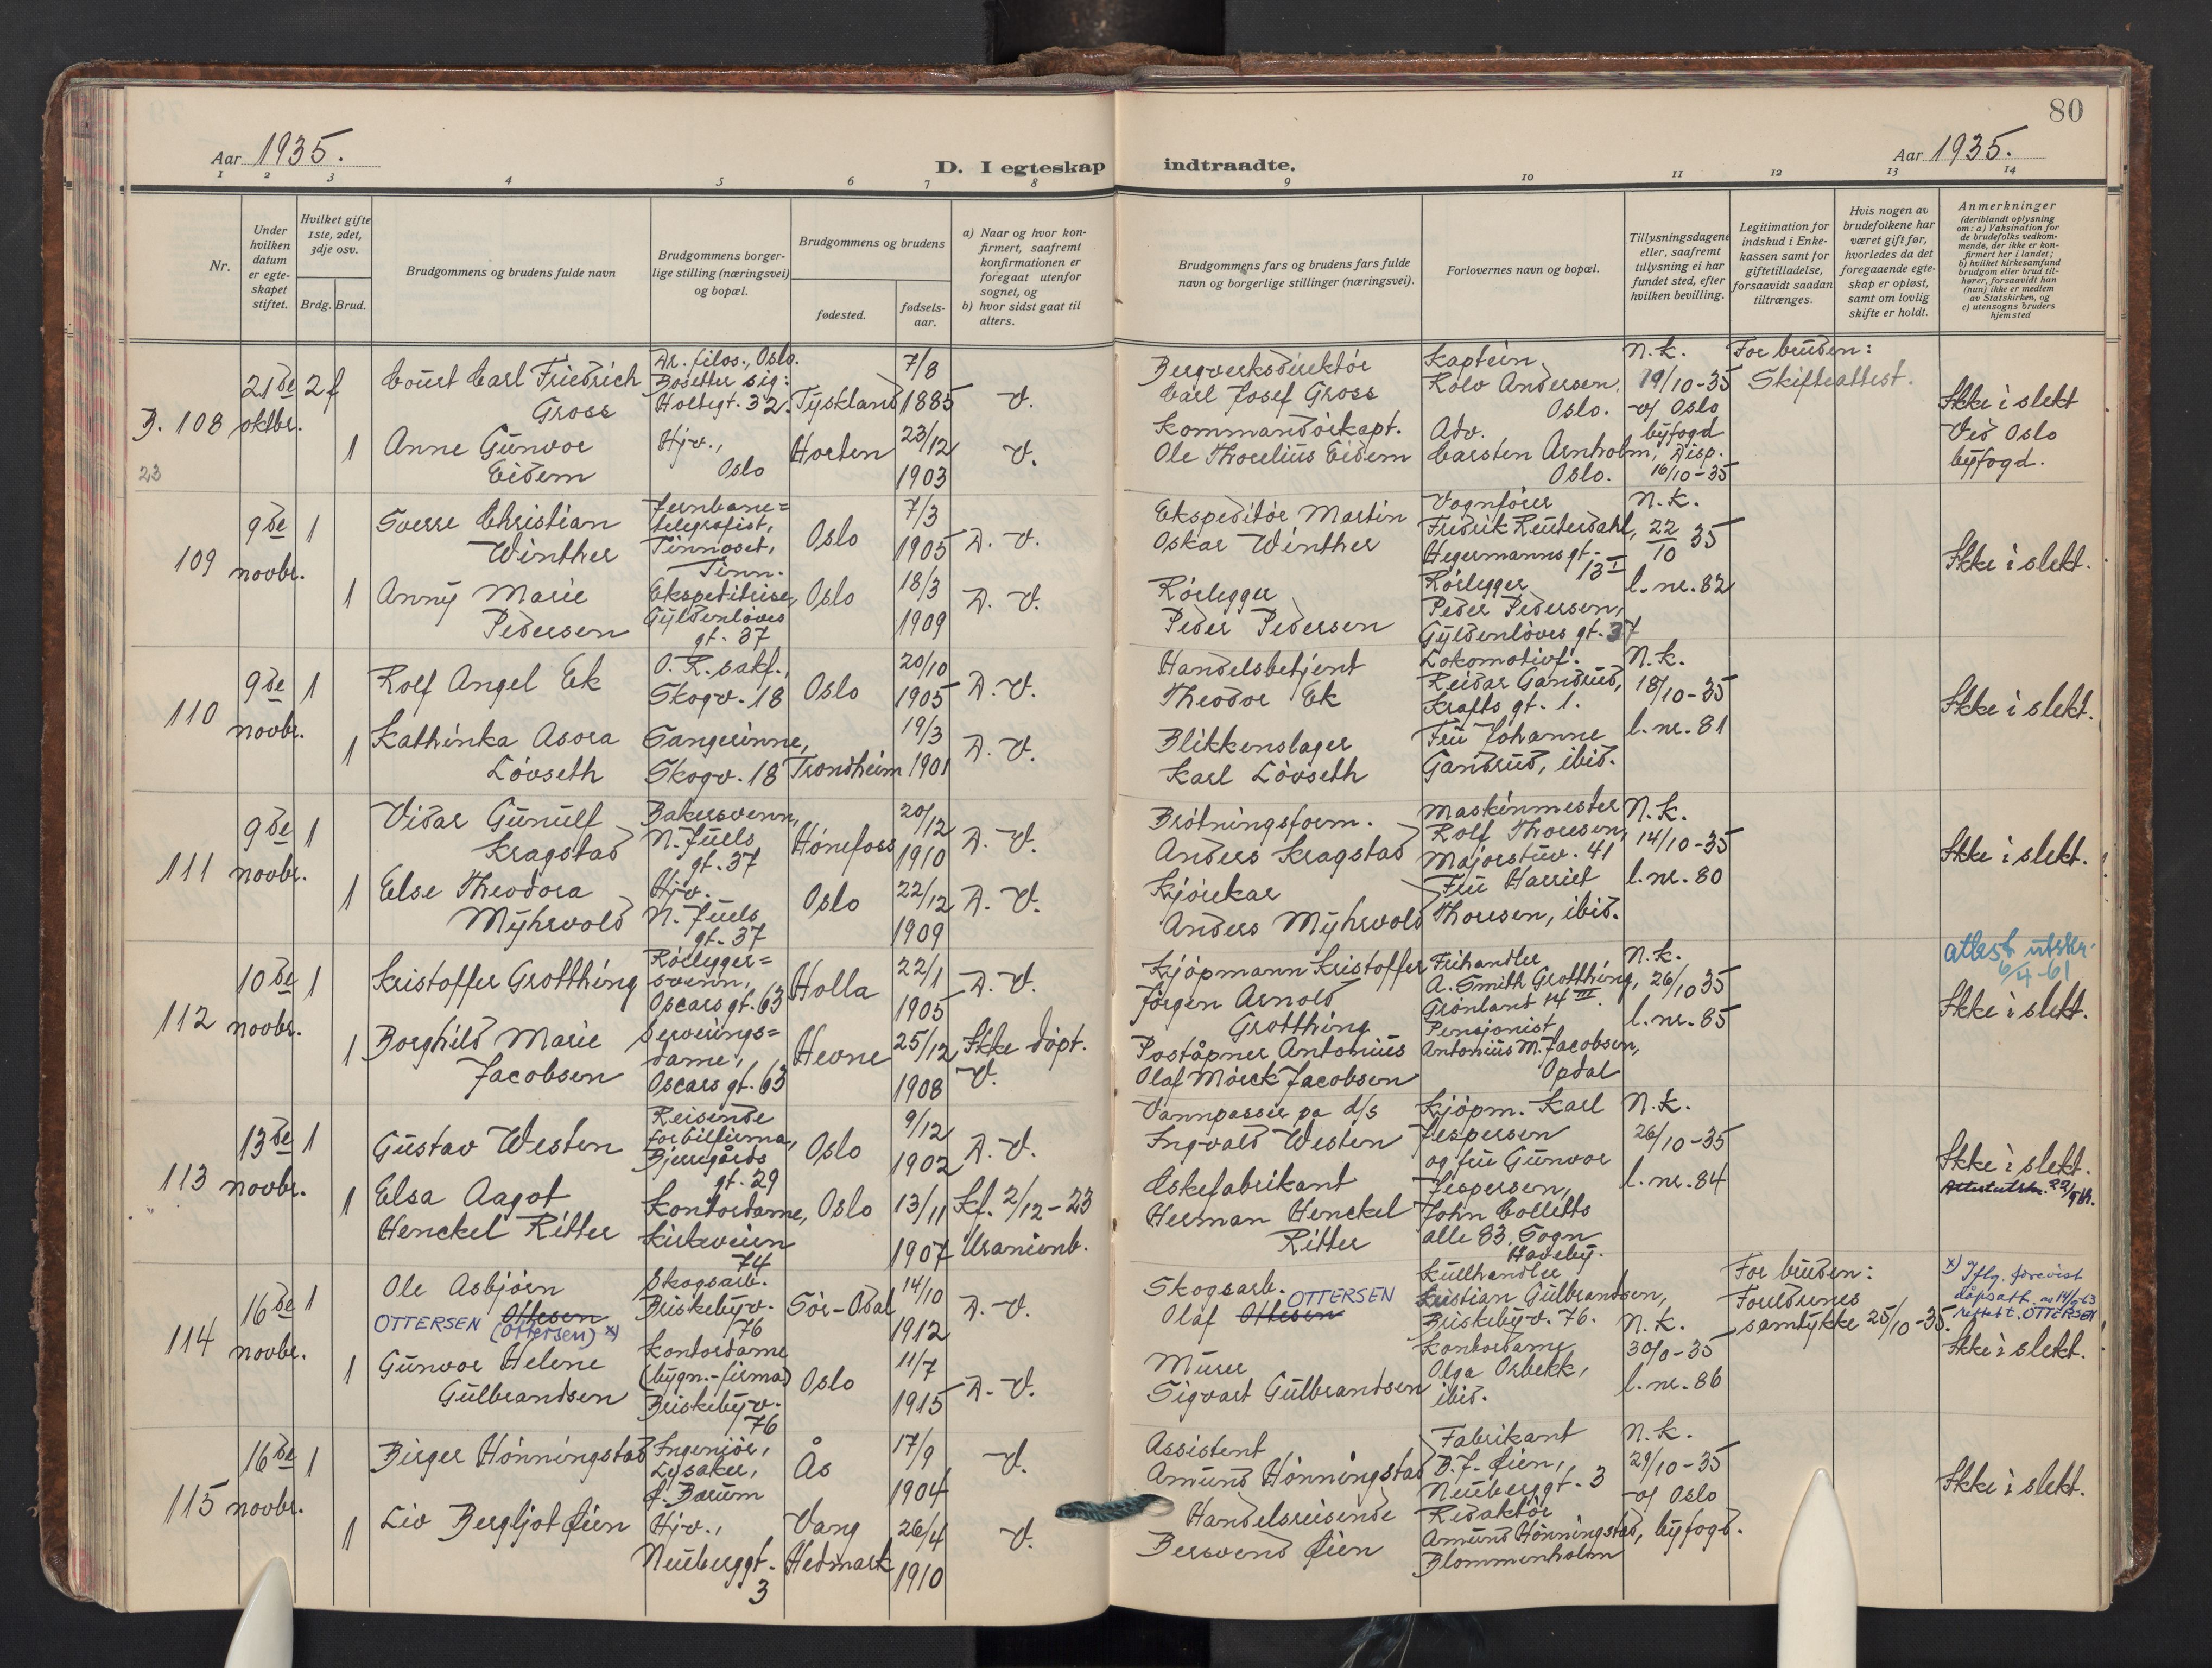 80
Aar 1935.
D. I egteskap indtraadte.
Aar 1935.
1 2 3 4 5 6 7 8 9 10 11 12 13 14
Nr.
Under hvilken datum er egteskapet stiftet.
Hvilket gifte 1ste, 2det, 3dje osv.
Brdg. Brud.
Brudgommens og brudens fulde navn
Brudgommens borgerlige stilling (næringsvei) og bopæl.
Brudgommens og brudens
fødested.
fødselsaar.
a) Naar og hvor konfirmert, saafremt konfirmationen er foregaat utenfor sognet, og
b) hvor sidst gaat til alters.
Brudgommens fars og brudens fars fulde navn og borgerlige stillinger (næringsvei).
Forlovernes navn og bopæl.
Tillysningsdagene eller, saafremt tillysning ei har fundet sted, efter hvilken bevilling.
Legitimation for indskud i Enkekassen samt for giftetilladelse, forsaavidt saadan tiltrænges.
Hvis nogen av brudefolkene har været gift før, hvorledes da det foregaaende egteskap er opløst, samt om lovlig skifte er holdt.
Anmerkninger
(deriblandt oplysning om: a) Vaksination for de brudefolks vedkommende, der ikke er konfirmert her i landet;
b) hvilket kirkesamfund brudgom eller brud tilhører, forsaavidt han (hun) ikke er medlem av Statskirken, og
c) utensogns bruders hjemsted
B. 108
23
21de oktbr.
2 f
Court Carl Friedrich Gross
Dr. filos., Oslo.
Bosetter sig:
Holtegt. 32.
Tyskland
7/8 1885
V.
Bergverksdirektör
Carl Josef Gross
Kaptein
Rolv Andersen,
Oslo.
N.k.
19/10-35
v/ Oslo
byfogd
For bruden:
Skifteattest.
Ikke i slekt
Ved Oslo
byfogd.
1
Anne Gunvor
Eidem
Hjv.,
Oslo
Horten
23/12 1903
V.
Kommandörkapt.
Ole Thorelius Eidem
Adv.
Carsten Arnholm,
Oslo.
Disp.
16/10-35
109
9de novbr.
1
Sverre Christian
Winther
Jernbane=
telegrafist,
Tinnoset,
Tinn.
Oslo
7/3 1905
D. V.
Ekspeditör Martin
Oskar Winther
Vognförer
Fredrik Reuterdahl,
Hegermanns gt.
13 I
N.k.
22/10 35
l. nr. 82
Ikke i slekt.
1
Anny Marie
Pedersen
Ekspeditrise,
Gyldenlöves
gt. 37
Oslo
18/3 1909
D. V.
Rörlegger
Peder Pedersen
Rörlegger
Peder Pedersen,
Gyldenlöves gt. 37
110
9de novbr.
1
Rolf Angel Ek
O.R.sakf.,
Skogv. 18
Oslo
20/10 1905
D. V.
Handelsbetjent
Theodor Ek
Lokomotivf.
Reidar Gandrud,
Krafts gt. 1.
N.k.
18/10-35
l. nr. 81
Ikke i slekt.
1
Kathinka Asora
Lövseth
Sangerinne,
Skogv. 18
Trondheim
19/3 1901
D. V.
Blikkenslager
Karl Lövseth
Fru Johanne
Gandrud, ibid.
111
9de novbr.
1
Vidar Gunulf
Kragstad
Bakersvenn,
N. Juels
gt. 37
Hönefoss
20/12 1910
D. V.
Brötningsform.
Anders Kragstad
Maskinmester
Rolf Thoresen,
Majorstuv. 41
N.k.
14/10-35
l. nr. 80
Ikke i slekt.
1
Else Theodora
Myhrvold
Hjv.
N. Juels
gt. 37
Oslo
22/12 1909
D. V.
Kjörekar
Anders Myhrvold
Fru Harriet
Thoresen, ibid.
112
10de novbr.
1
Kristoffer Grotthing
Rörlegger=
svenn,
Oscars gt. 63
Holla
22/1 1905
D. V.
Kjöpmann Kristoffer
Jörgen Arnold
Grotthing
Frihandler
A. Smith Grotthing,
Grönland 14 III.
N.k.
26/10 35
l. nr. 85
attest utskr.
6/4-61
Ikke i slekt.
1
Borghild Marie
Jacobsen
Serverings=
dame,
Oscars gt. 63
Hevne
25/12 1908
Ikke döpt.
V.
Poståpner Antonius
Olaf Mörck Jacobsen
Pensjonist
Antonius M. Jacobsen,
Opdal
113
13de novbr.
1
Gustav Westen
Reisende
for bilfirma,
Bjerregårds
gt. 29
Oslo
9/12 1902
D. V.
Vannpasser pa d/s
Ingvald Westen
Kjöpm. Karl
Jespersen
og fru Gunvor
Jespersen,
John Colletts
alle 83, Sogn
Haveby.
N.k.
26/10-35
l. nr. 84
Ikke i slekt.
1
Elsa Aagot
Henckel Ritter
Kontordame,
Kirkeveien
74
Oslo
13/11 1907
Kf. 2/12-23
Uranienb.
Eskefabrikant
Herman Henckel
Ritter
114
16de novbr.
1
Ole Asbjörn
Ottesen
OTTERSEN (Ottersen) x)
Skogsarb.
Briskebyv.
76
Sör-Odal
14/10 1912
D. V.
Skogsarb.
Olaf Ottesen OTTERSEN
Kullhandler
Kristian Gulbrandsen,
Briskebyv. 76.
N.k.
30/10-35
l. nr. 86
For bruden:
Foreldrenes
samtykke 25/10-35.
x) Iflg. forevist
dåpsatt.
rettet t. OTTERSEN
Ikke i slekt.
1
Gunvor Helene
Gulbrandsen
Kontordame
(bygn.-firma)
Briskebyv.
76
Oslo
11/7 1915
D. V.
Murer
Sigvart Gulbrandsen
Kontordame
Olga Orbekk,
ibid.
115
16de novbr.
1
Birger Hönningstad
Ingeniör,
Lysaker,
Ö. Bærum
Ås
17/9 1904
V.
Assistent
Amund Hönningstad
Fabrikant
B. J. Öien,
Neuberggt. 3
N.k.
29/10-35
v/ Oslo
byfogd.
Ikke i slekt.
1
Liv Bergljot Öien
Hjv.,
Neuberggt.
3
Vang
Hedmark
26/4 1910
V.
Handelsreisende
Bersvend Öien
Redaktör
Amund Hönningstad,
Blommenholm